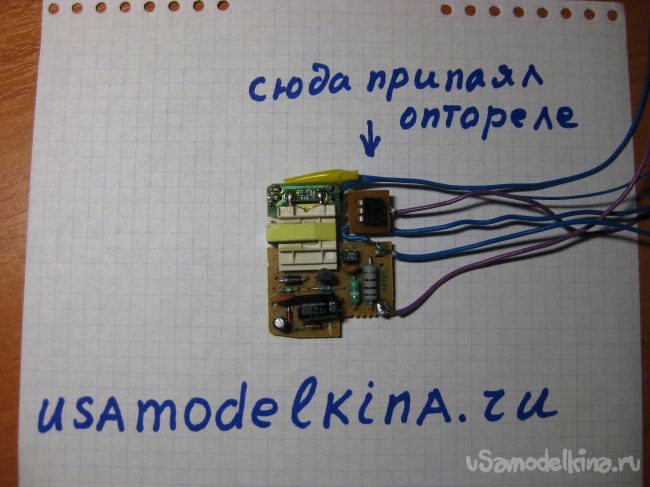 сюда припаял
оптореле
usamodelkina.ru
uSamodelkina.ru